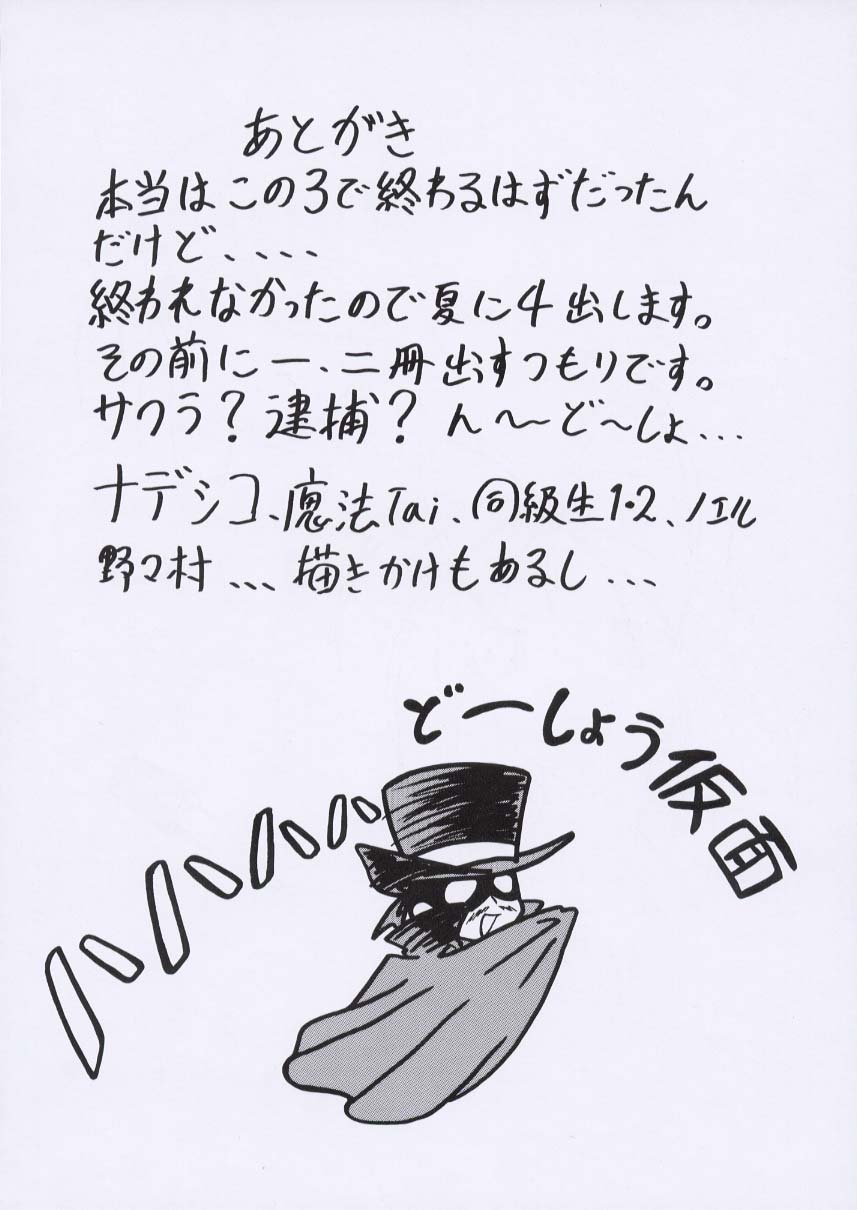 あとがき
本当はこの3で終わるはずだったん
だけど、、、、
終われなかったので夏に4出します。
その前に一、二冊出すつもりです。
サクラ？逮捕？ん〜ど〜しよ...
ナデシコ、魔法Tai、同級生1・2、ノエル
野々村、、、描きかけもあるし、、、
どーしよう仮面
ハハハハ